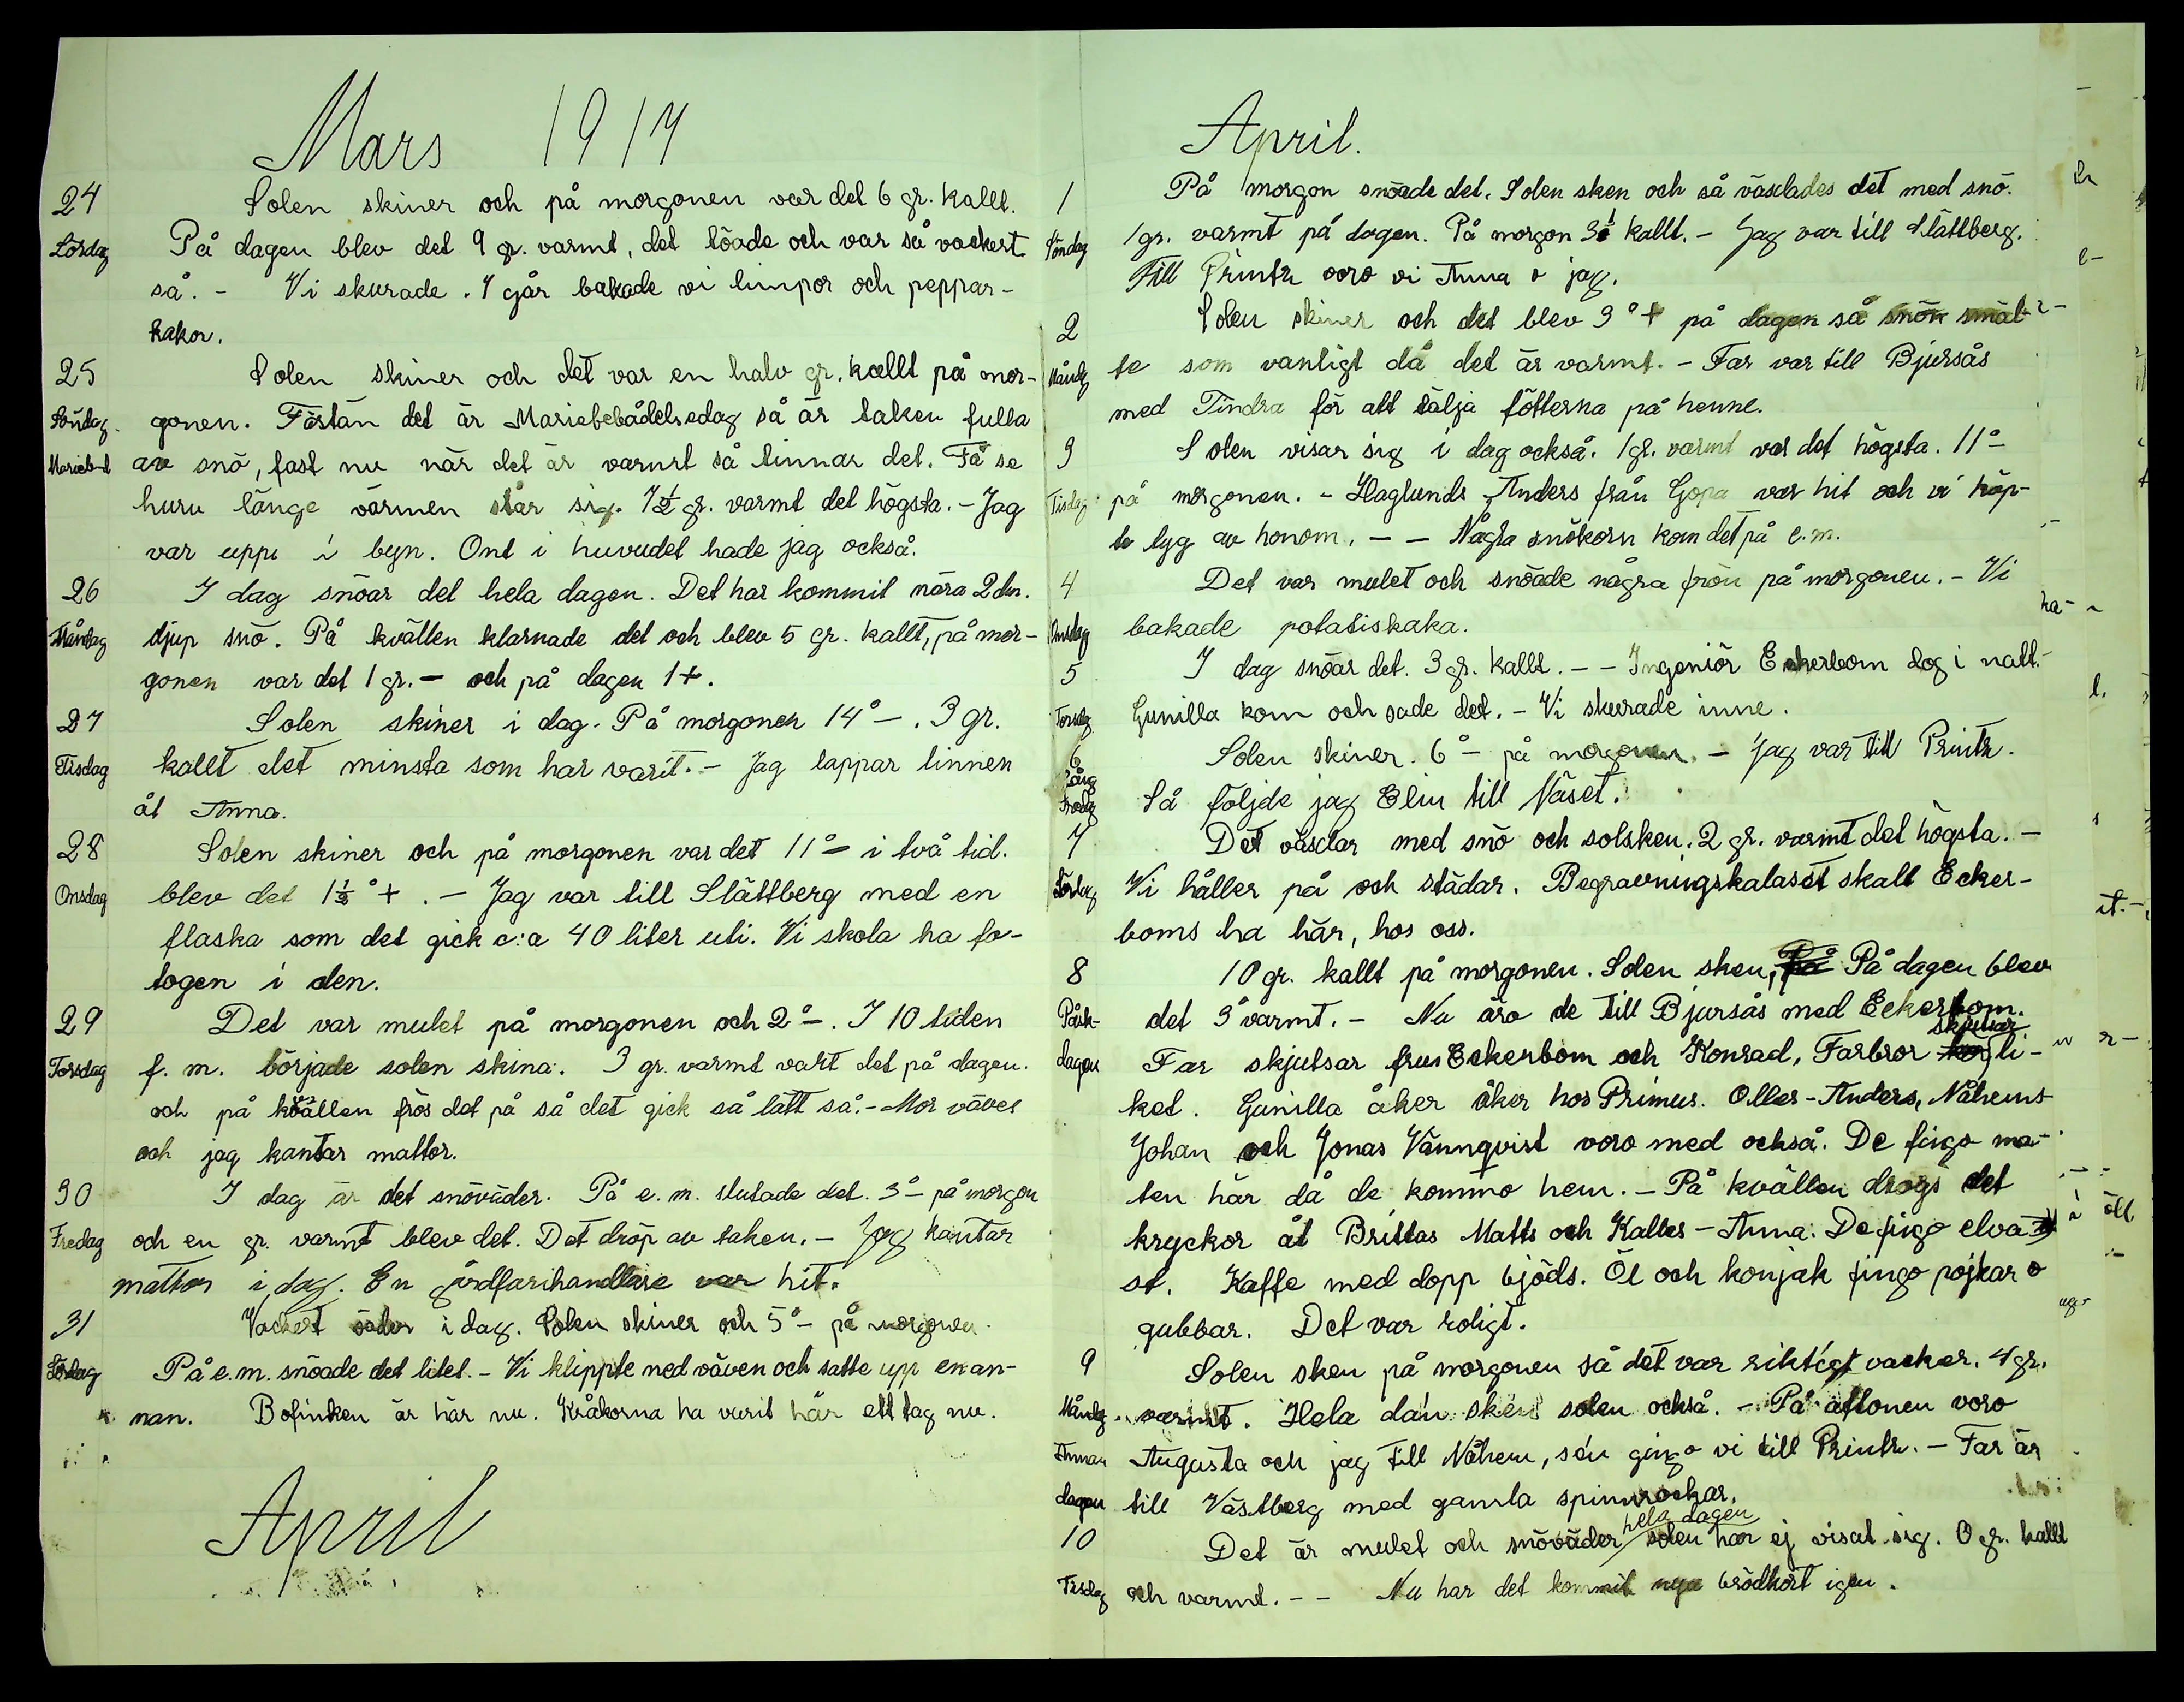 Mars 1917
24 Solen skiner och på morgonen var det 6 gr. kallt.
Lördag På dagen blev det 9 gr. varmt, det töade och var så vackert
så. - Vi skurade. I går bakade vi limpor och peppar-
kakor.
25 Solen skiner och det var en halv gr. kallt på mor-
Söndag. gonen. Fästän det är Mariebebådelsedag så är taken fulla
Marieb-d av snö, fast nu när det är varmt så tinnar det. Få se
huru länge värmen står sig. 7½ gr. varmt det högsta. - Jag
var uppe i byn. Ont i huvudet hade jag också.
26 I dag snöar det hela dagen. Det har kommit nära 2 dm.
Måndag djup snö. På kvällen klarnade det och blev 5 gr. kallt, på mor-
gonen var det 1 gr. - och på dagen 1+.
27 Solen skiner i dag. På morgonen 14° -. 3 gr.
Tisdag kallt det minsta som har varit. - Jag lappar linnen
åt Anna.
28 Solen skiner och på morgonen var det 11° - i två tid.
Onsdag blev det 1½° +. - Jag var till Slättberg med en
flaska som det gick c:a 40 liter uti. Vi skola ha fo-
togen i den.
29 Det var mulet på morgonen och 2° -. I 10 tiden
Torsdag f. m. började solen skina. 3 gr. varmt vart det på dagen.
och på kvällen frös det på så det gick så lätt så. - Mor väver
och jag kantar mattor.
30 I dag är det snöväder. På e. m. slutade det. 3° - på morgon
Fredag och en gr. varmt blev det. Det dröp av taken. - Jag kantar
mattor i dag. En gårdfarihandlare var hit.
31 Vackert väder i dag. Solen skiner och 5° - på morgonen.
Lördag På e. m. snöade det litet. - Vi klippte ned väven och satte upp en an-
nan. Bofinken är här nu. Kråkorna ha varit här ett tag nu.
April
April.
1 På morgon snöade det. Solen sken och så väsdades det med snö.
Söndag 1 gr. varmt på dagen. På morgon 3½ kallt. - Jag var till Slättberg.
Till Printz voro vi Anna o jag.
2 Solen skiner och det blev 3° + på dagen så snön smäl-
Måndg te som vanligt då det är varmt. - Far var till Bjursås
med Tindra för att tälja fötterna på henne.
3 Solen visar sig i dag också. 1 gr. varmt var det högsta. 11° -
Tisdag på morgonen. - Haglunds Anders från Gopa var hit och vi köp-
te tyg av honom. - - Några snökorn kom det på e. m.
4 Det var mulet och snöade några frön på morgonen. - Vi
Onsdag bakade potatiskaka.
5 I dag snöar det. 3 gr. kallt. - - Ingeniör Eckerbom dog i natt.
Torsdg Gunilla kom och sade det. - Vi skurade inne.
6 Solen skiner. 6° - på morgonen. - Jag var till Printz.
Lång
Fredg Så följde jag Elin till Näset.
7 Det väsdar med snö och solsken. 2 gr. varmt det högsta. -
Lördag Vi håller på och städar. Begravningskalaset skall Ecker-
boms ha här, hos oss.
8 10 gr. kallt på morgonen. Solen sken, På dagen blev
Påsk- det 3° varmt. - Nu äro de till Bjursås med Eckerbom.
skjutsar
dagen Far skjutsar frus Eckerbom och Konrad, Farbror li-
ket. Gunilla åker åker hos Primus. Olles-Anders, Nåhems
Johan och Jonas Vännqvist voro med också. De fingo ma-
ten här då de kommo hem. - På kvällen drogs det
kryckor åt Brittas Matts och Kalles-Anna. De fingo elva
st. Kaffe med dopp bjöds. Öl och konjak fingo pojkar o
gubbar. Det var roligt.
9 Solen sken på morgonen så det var riktigt vacker. 4 gr.
Måndg. varmt. Hela da'n sken solen också. - På aftonen voro
Annan Augusta och jag till Nåhem, se'n gingo vi till Printz. - Far är
dagen till Västberg med gamla spinnrockar.
hela dagen
10 Det är mulet och snöväder solen har ej visat sig. 0 gr. kallt
Tisdag och varmt. - - Nu har det kommit nya brödkort igen.